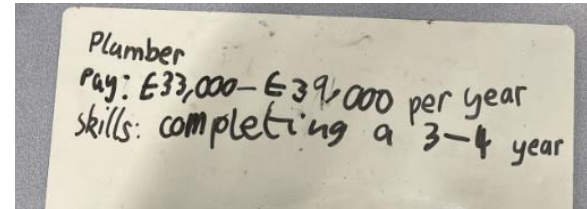 Plumber
Pay: £33,000-£39,000 per year
skills: completing a 3-4 year